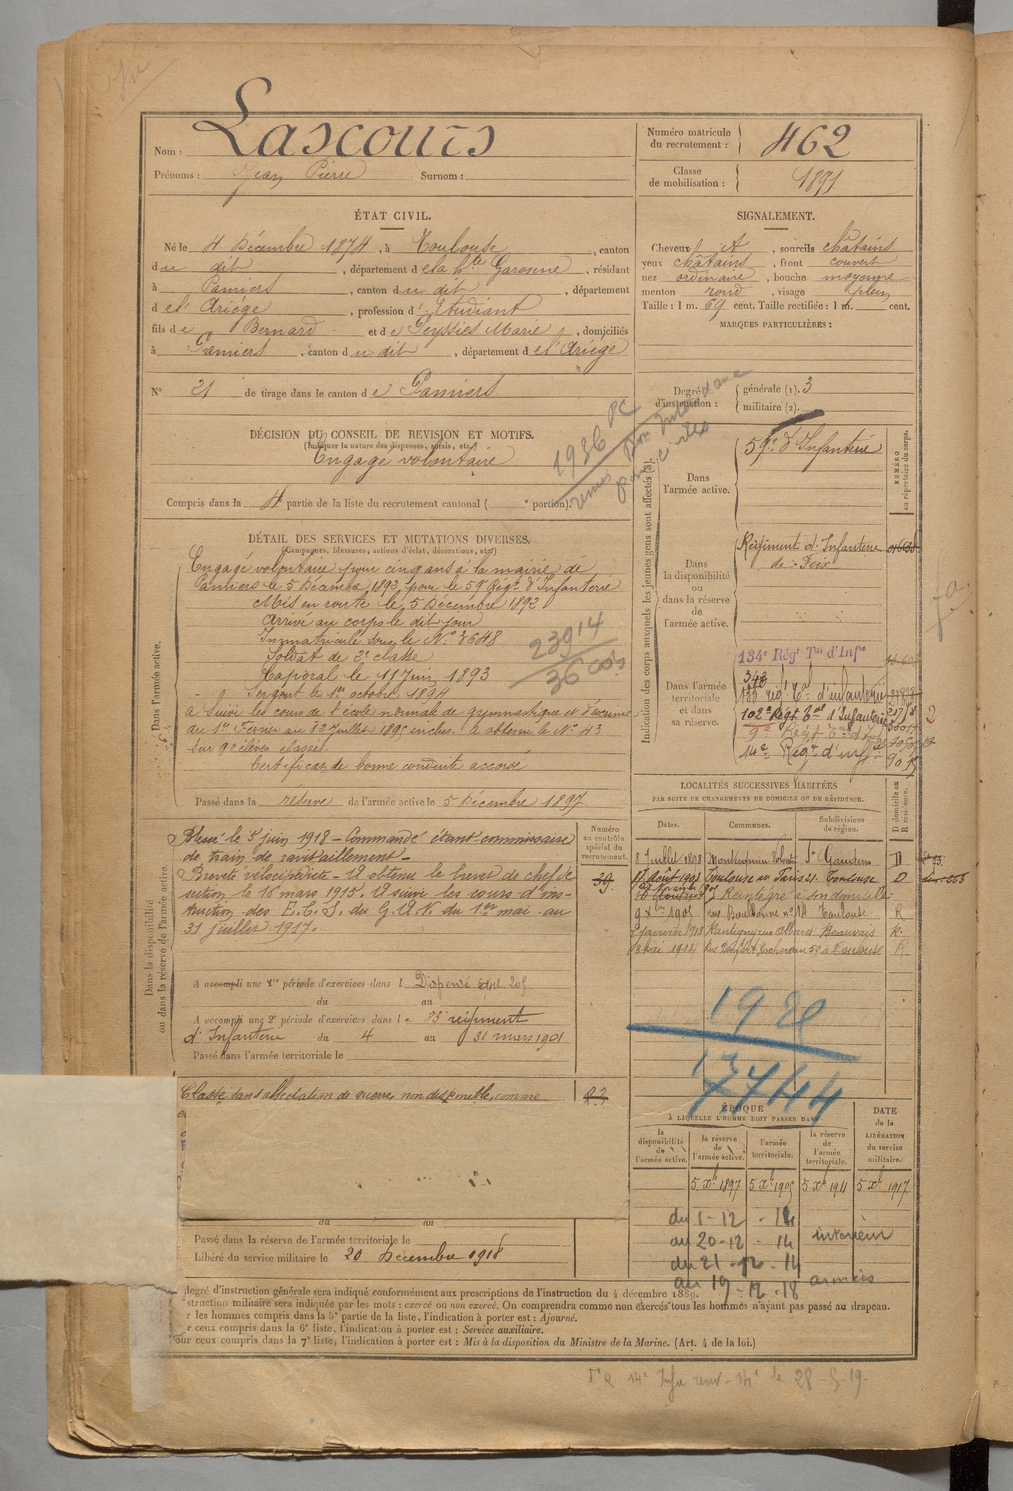 Nom : Lascours
Prénoms : Jean Pierre Surnom :
Numéro matricule du recrutement : 462
Classe de mobilisation : 1891
ÉTAT CIVIL.
Né le 4 Décembre 1874, à Toulouse, canton
du dit, département de la hte Garonne, résidant
à Pamiers, canton du dit, département
de l'Ariège, profession d'Etudiant
fils de Bernard et de Peyssies Marie, domiciliés
à Pamiers, canton du dit, département de l'Ariège
N° 21 de tirage dans le canton de Pamiers
SIGNALEMENT.
Cheveux, sourcils châtains
yeux châtains, front couvert
nez ordinaire, bouche moyenne
menton rond, visage plein
Taille : 1 m. 69 cent. Taille rectifiée : 1 m. cent.
MARQUES PARTICULIÈRES :
Degré d'instruction : générale (1). 3
militaire (2).
DÉCISION DU CONSEIL DE REVISION ET MOTIFS.
(Indiquer la nature des dispenses, sursis, etc.)
Engagé volontaire
Compris dans la 4e partie de la liste du recrutement cantonal ( e portion).
1936 PC
DÉTAIL DES SERVICES ET MUTATIONS DIVERSES.
(Campagnes, blessures, actions d'éclat, décorations, etc.)
Dans l'armée active.
Engagé volontaire pour cinq ans à la mairie de
Pamiers le 5 Décembre 1892 pour le 59e Régt d'Infanterie
Mis en route le 5 Décembre 1892
Arrivé au corps le dit jour
Immatriculé sous le N° 3648
Soldat de 2e classe
Caporal le 11 juin 1893
Sergent le 1er octobre 1894
a suivi les cours de l'école normale de gymnastique et d'escrime
du 1er Février au 31 juillet 1895 inclus. A obtenu le N° 43
sur 90 élèves classés.
Certificat de bonne conduite accordé
23914
36 cois
Passé dans la réserve de l'armée active le 5 Décembre 1897
Indication des corps auxquels les jeunes gens sont affectés (3).
NUMÉRO au répertoire du corps.
Dans l'armée active.
59e d'Infanterie
Dans la disponibilité ou dans la réserve de l'armée active.
Régiment d'Infanterie
de Foix
Dans l'armée territoriale et dans sa réserve.
134e Régt Tal d'Infie
133 régt Tal d'infanterie
102e Régt Tal d'Infanterie
14e Régt d'inf
2
LOCALITÉS SUCCESSIVES HABITÉES
PAR SUITE DE CHANGEMENTS DE DOMICILE OU DE RÉSIDENCE.
Dates. Communes. Subdivisions de région. D domicile ou R résidence.
8 Juillet 1898 Montesquieu Volvestre St Gaudens D
Août 1901 Toulouse Toulouse D
Réintégré à son domicile
9 1905 rue Boulbonne n° 14 Toulouse R
2 janvier Rantigny rue Beauvais R.
18 Mai 1914 59 à Toulouse R.
1920
17744
Dans la disponibilité ou dans la réserve de l'armée active.
Numéro au contrôle spécial du recrutement.
39
Blessé le 5 juin 1918 - Commandé étant commissaire
de train de ravitaillement -
Breveté vélocipédiste - A obtenu le brevet de chef de
section le 16 mars 1915. A suivi les cours d'ins-
truction des E.C.S. du G.A.N. du 1er mai au
31 juillet 1917.
A accompli une 1re période d'exercices dans l Dispensé
du au
A accompli une 2e période d'exercices dans le 83 régiment
d'Infanterie du 4 au 31 mars 1901
Passé dans l'armée territoriale le
Classé dans affectation de guerre non disponible, comme
ÉPOQUE
À LAQUELLE L'HOMME DOIT PASSER DANS
la disponibilité de l'armée active. la réserve de l'armée active. l'armée territoriale. la réserve de l'armée territoriale.
DATE de la LIBÉRATION du service militaire.
5 Xbre 1897 5 Xbre 1905 5 Xbre 1911 5 Xbre 1917
du 1-12 - 14
au 20-12 - 14 intérieur
du 21 - 12 - 14
au 19 - 12 - 18 armées
du au
Passé dans la réserve de l'armée territoriale le
Libéré du service militaire le 20 Décembre 1918
degré d'instruction générale sera indiqué conformément aux prescriptions de l'Instruction du 4 décembre 1889.
struction militaire sera indiquée par les mots : exercé ou non exercé. On comprendra comme non exercés tous les hommes n'ayant pas passé au drapeau.
r les hommes compris dans la 5e partie de la liste, l'indication à porter est : Ajourné.
r ceux compris dans la 6e liste, l'indication à porter est : Service auxiliaire.
our ceux compris dans la 7e liste, l'indication à porter est : Mis à la disposition du Ministre de la Marine. (Art. 4 de la loi.)
le 28-5-19.